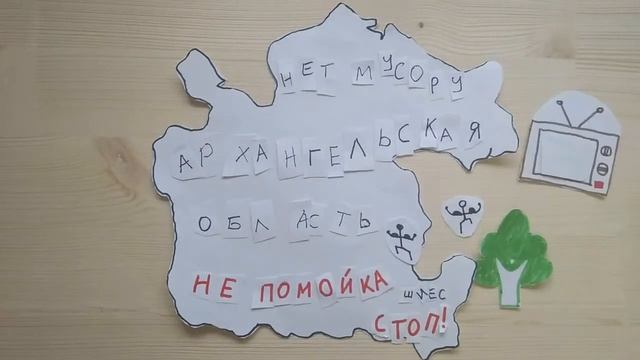 НЕТ МУСОРУ
АРХАНГЕЛЬСКАЯ
ОБЛАСТЬ
НЕ ПОМОЙКА
ШИЕС
СТОП!